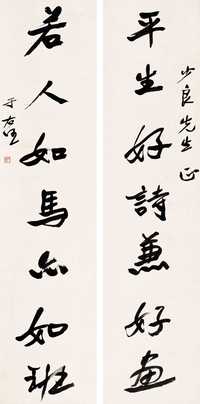 少良先生正
平生好詩兼好畫
若人如馬亦如班
于右任